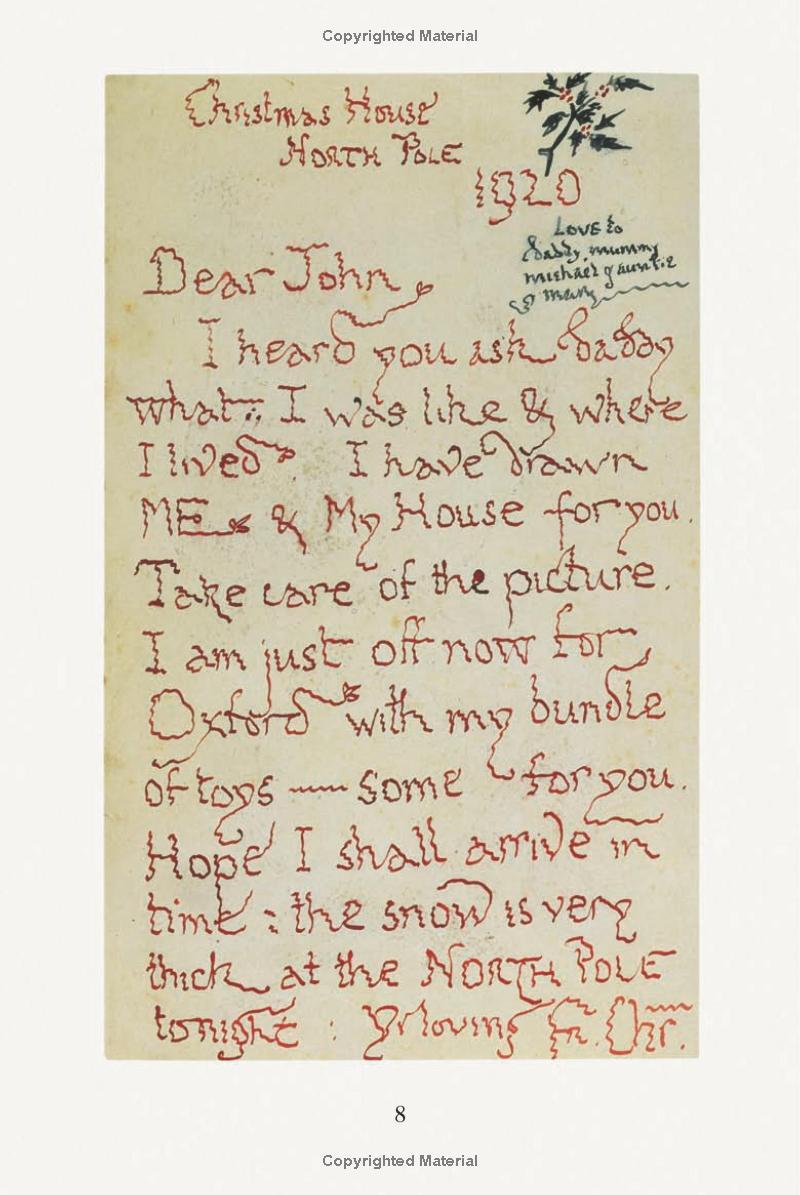 Copyrighted Material
Christmas House
NORTH POLE
1920
Love to
daddy, mummy
michael & auntie
mary
Dear John,
I heard you ask daddy
what I was like & where
I lived. I have drawn
ME & My House for you.
Take care of the picture.
I am just off now for
Oxford with my bundle
of toys — some for you.
Hope I shall arrive in
time : the snow is very
thick at the NORTH POLE
tonight : Yr loving Fr. Chr.
8
Copyrighted Material